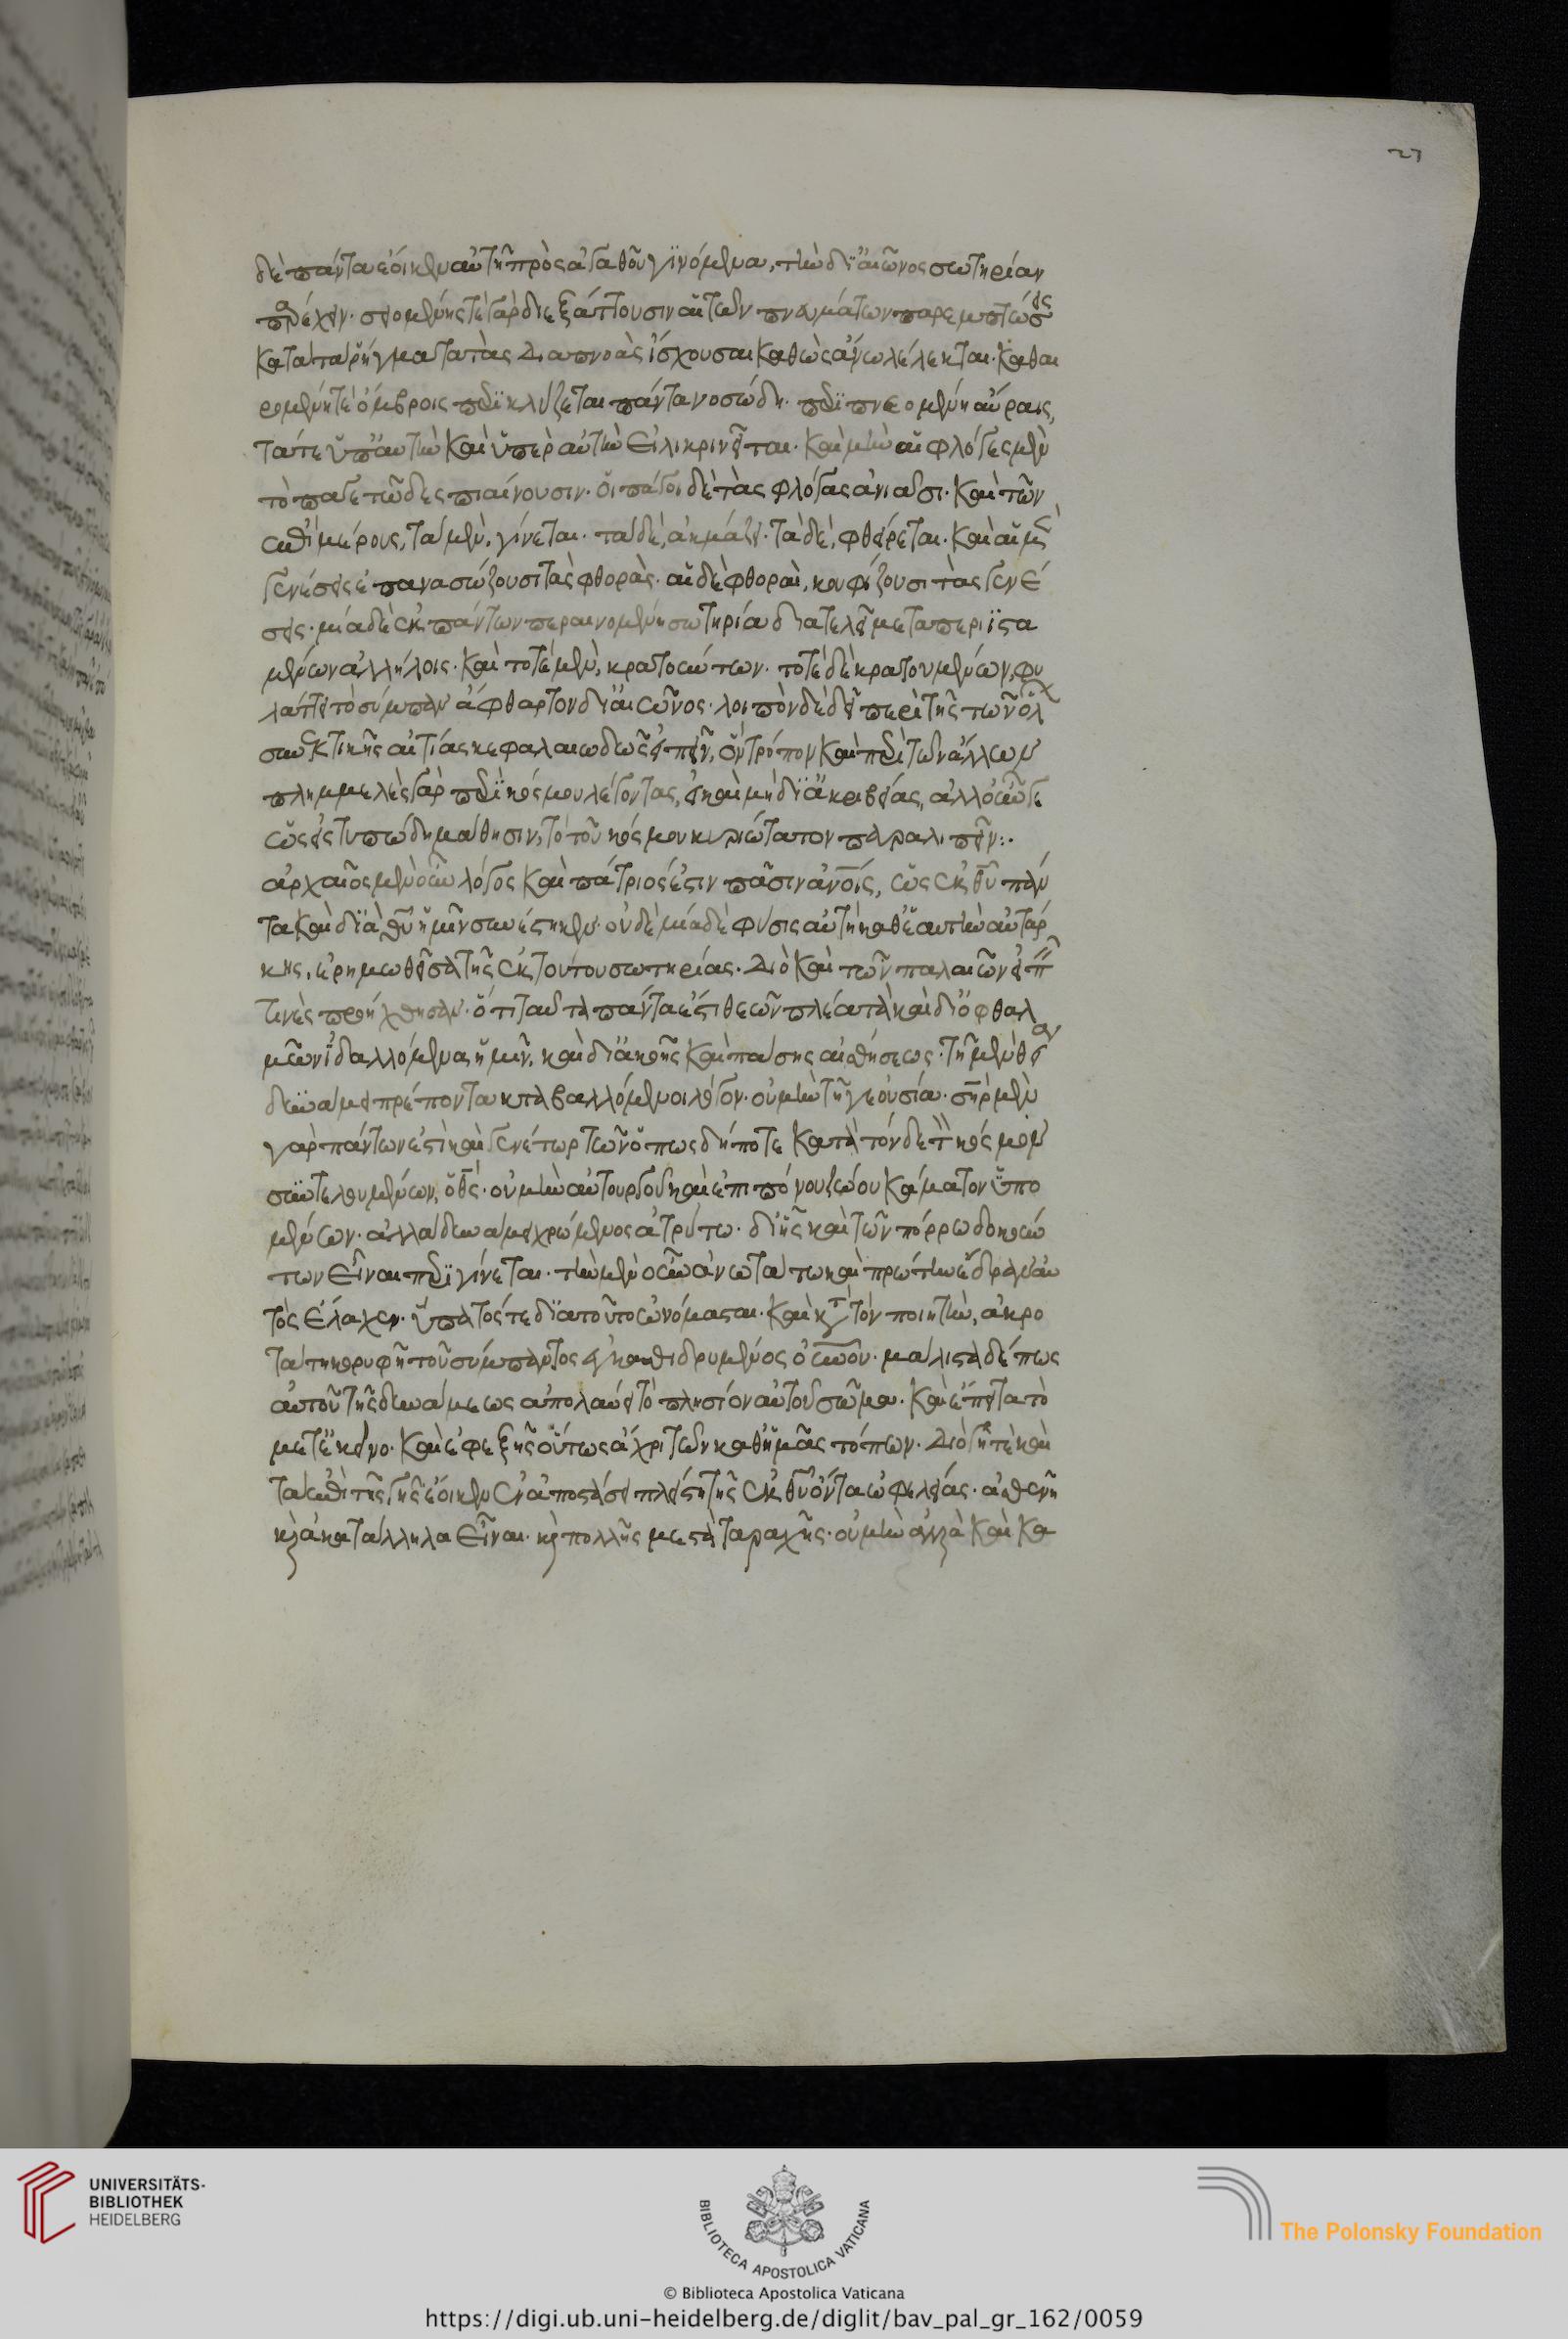 δὲ πάντα ἔοικεν αὐτῆ πρὸς ἀγαθοῦ γϊνόμενα, τὴν δϊ' αἰῶνος σωτηρίαν
παρέχειν· σειομένης τε γὰρ διεξάττουσιν αἱ τῶν πνευμάτων παρεμπτώσεις
κατὰ τὰ ῥήγματα τὰς διαπνοὰς ἴσχουσαι καθὼς ἄνω λέλεκται· καθαι
ρομένη τὲ ὄμβροις περϊκλύζεται πάντα νοσώδη· περϊπνεομένη αὔραις,
τά τε ὑπ' αὐτὴν καὶ ὑπὲρ αὐτὴν εἰλικρινεῖται· καὶ μὴν αἱ φλόγες μὲν
τὸ παγετῶδες πιαίνουσιν· οἱ πάγοι δὲ τὰς φλόγας ἀνιᾶσι· καὶ τῶν
ἐπὶ μέρους, τὰ μὲν, γίνεται· τὰ δὲ, ἀκμάζει· τὰ δὲ, φθείρεται· καὶ αἱ μὲν
γενέσεις ἐπανασώζουσι τὰς φθοράς· αἱ δὲ φθοραὶ, κουφίζουσι τὰς γενέ
σεις· μία δὲ ἐκ πάντων περαινομένη σωτηρία διατελεῖ μεταπεριϊστα
μένων ἀλλήλοις· καὶ τοτὲ μὲν, κρατούντων· τοτὲ δὲ κρατουμένων, φυ
λάττει τὸ σύμπαν ἄφθαρτον δϊ' αἰῶνος· λοιπὸν δὲ δεῖ περὶ τῆς τῶν ὅλων
συνεκτικῆς αἰτίας κεφαλαιωδῶς εἰπεῖν, ὃν τρόπον καὶ περὶ τῶν ἄλλων
πλημμελὲς γὰρ περϊ κόσμου λέγοντας, εἰ καὶ μὴ δϊ' ἀκριβείας, ἀλλ' οὖν γε
ὡς εἰς τυπώδη μάθησιν, τὸ τοῦ κόσμου κυριώτατον παραλιπεῖν:·
ἀρχαῖος μὲν οὖν λόγος καὶ πάτριός ἐστιν πᾶσιν ἀνοις, ὡς ἐκ θυ πάν
τα καὶ διὰ θν ἡμῖν συνέστηκεν· οὐδεμία δὲ φύσις αὐτὴ καθ' ἑαυτὴν αὐτάρ
κης, ἐρημωθεῖσα τῆς ἐκ τούτου σωτηρίας· διὸ καὶ τῶν παλαιῶν εἰπεῖν
τινὲς προήχθησαν· ὅτι ταῦτα πάντα ἐστὶ θεῶν πλέα τὰ καὶ δι' ὀφθαλ
μῶν ἰνδαλλόμενα ἡμῖν, καὶ δι' ἀκοῆς καὶ πάσης αἰσθήσεως· τῆ μὲν θεία
δυνάμει πρέποντα καταβαλλόμενοι λόγον· οὐ μὴν τῆ γε οὐσία· σηρ μὲν
γὰρ πάντων ἐστὶ καὶ γενέτωρ τῶν ὅπως δήποτε κατὰ τόνδε τὸν κόσμον
συντελουμένων, ὁ θς· οὐ μὴν αὐτουργοῦ καὶ ἐπιπόνου ζώου κάματον ὑπο
μένων· ἀλλὰ δυνάμει χρώμενος ἀτρύτω· δι' ἧς καὶ τῶν πόρρω δοκούν
των εἶναι περϊγίνεται· τὴν μὲν οὖν ἀνωτάτω καὶ πρώτην ἕδραν αὐ
τὸς ἔλαχεν· ὕπατός τε δϊὰ τοῦτο ὠνόμασται· καὶ κατὰ τὸν ποιητὴν, ἀκρο
τάτη κορυφῆ τοῦ σύμπαντος ἐγκαθιδρυμένος οὐνον· μάλιστα δέ πως
αὐτοῦ τῆς δυνάμεως ἀπολαύει τὸ πλησίον αὐτοῦ σῶμα· καὶ ἔπειτα τὸ
μετ' ἐκεῖνο· καὶ ἐφεξῆς οὕτως ἄχρι τῶν καθ' ἡμᾶς τόπων· διὸ γῆ τὲ καὶ
τὰ ἐπὶ τῆς γῆς ἔοικεν ἐν ἀποστάσει πλείστη τῆς ἐκ θυ ὄντα ὠφελείας· ἀσθενῆ
κὶ ἀκατάλληλα εἶναι· κὶ πολλῆς μεστὰ ταραχῆς· οὐ μὴν ἀλλὰ καὶ κα
27
UNIVERSITÄTS-
BIBLIOTHEK
HEIDELBERG
BIBLIOTECA APOSTOLICA VATICANA
The Polonsky Foundation
© Biblioteca Apostolica Vaticana
https://digi.ub.uni-heidelberg.de/diglit/bav_pal_gr_162/0059